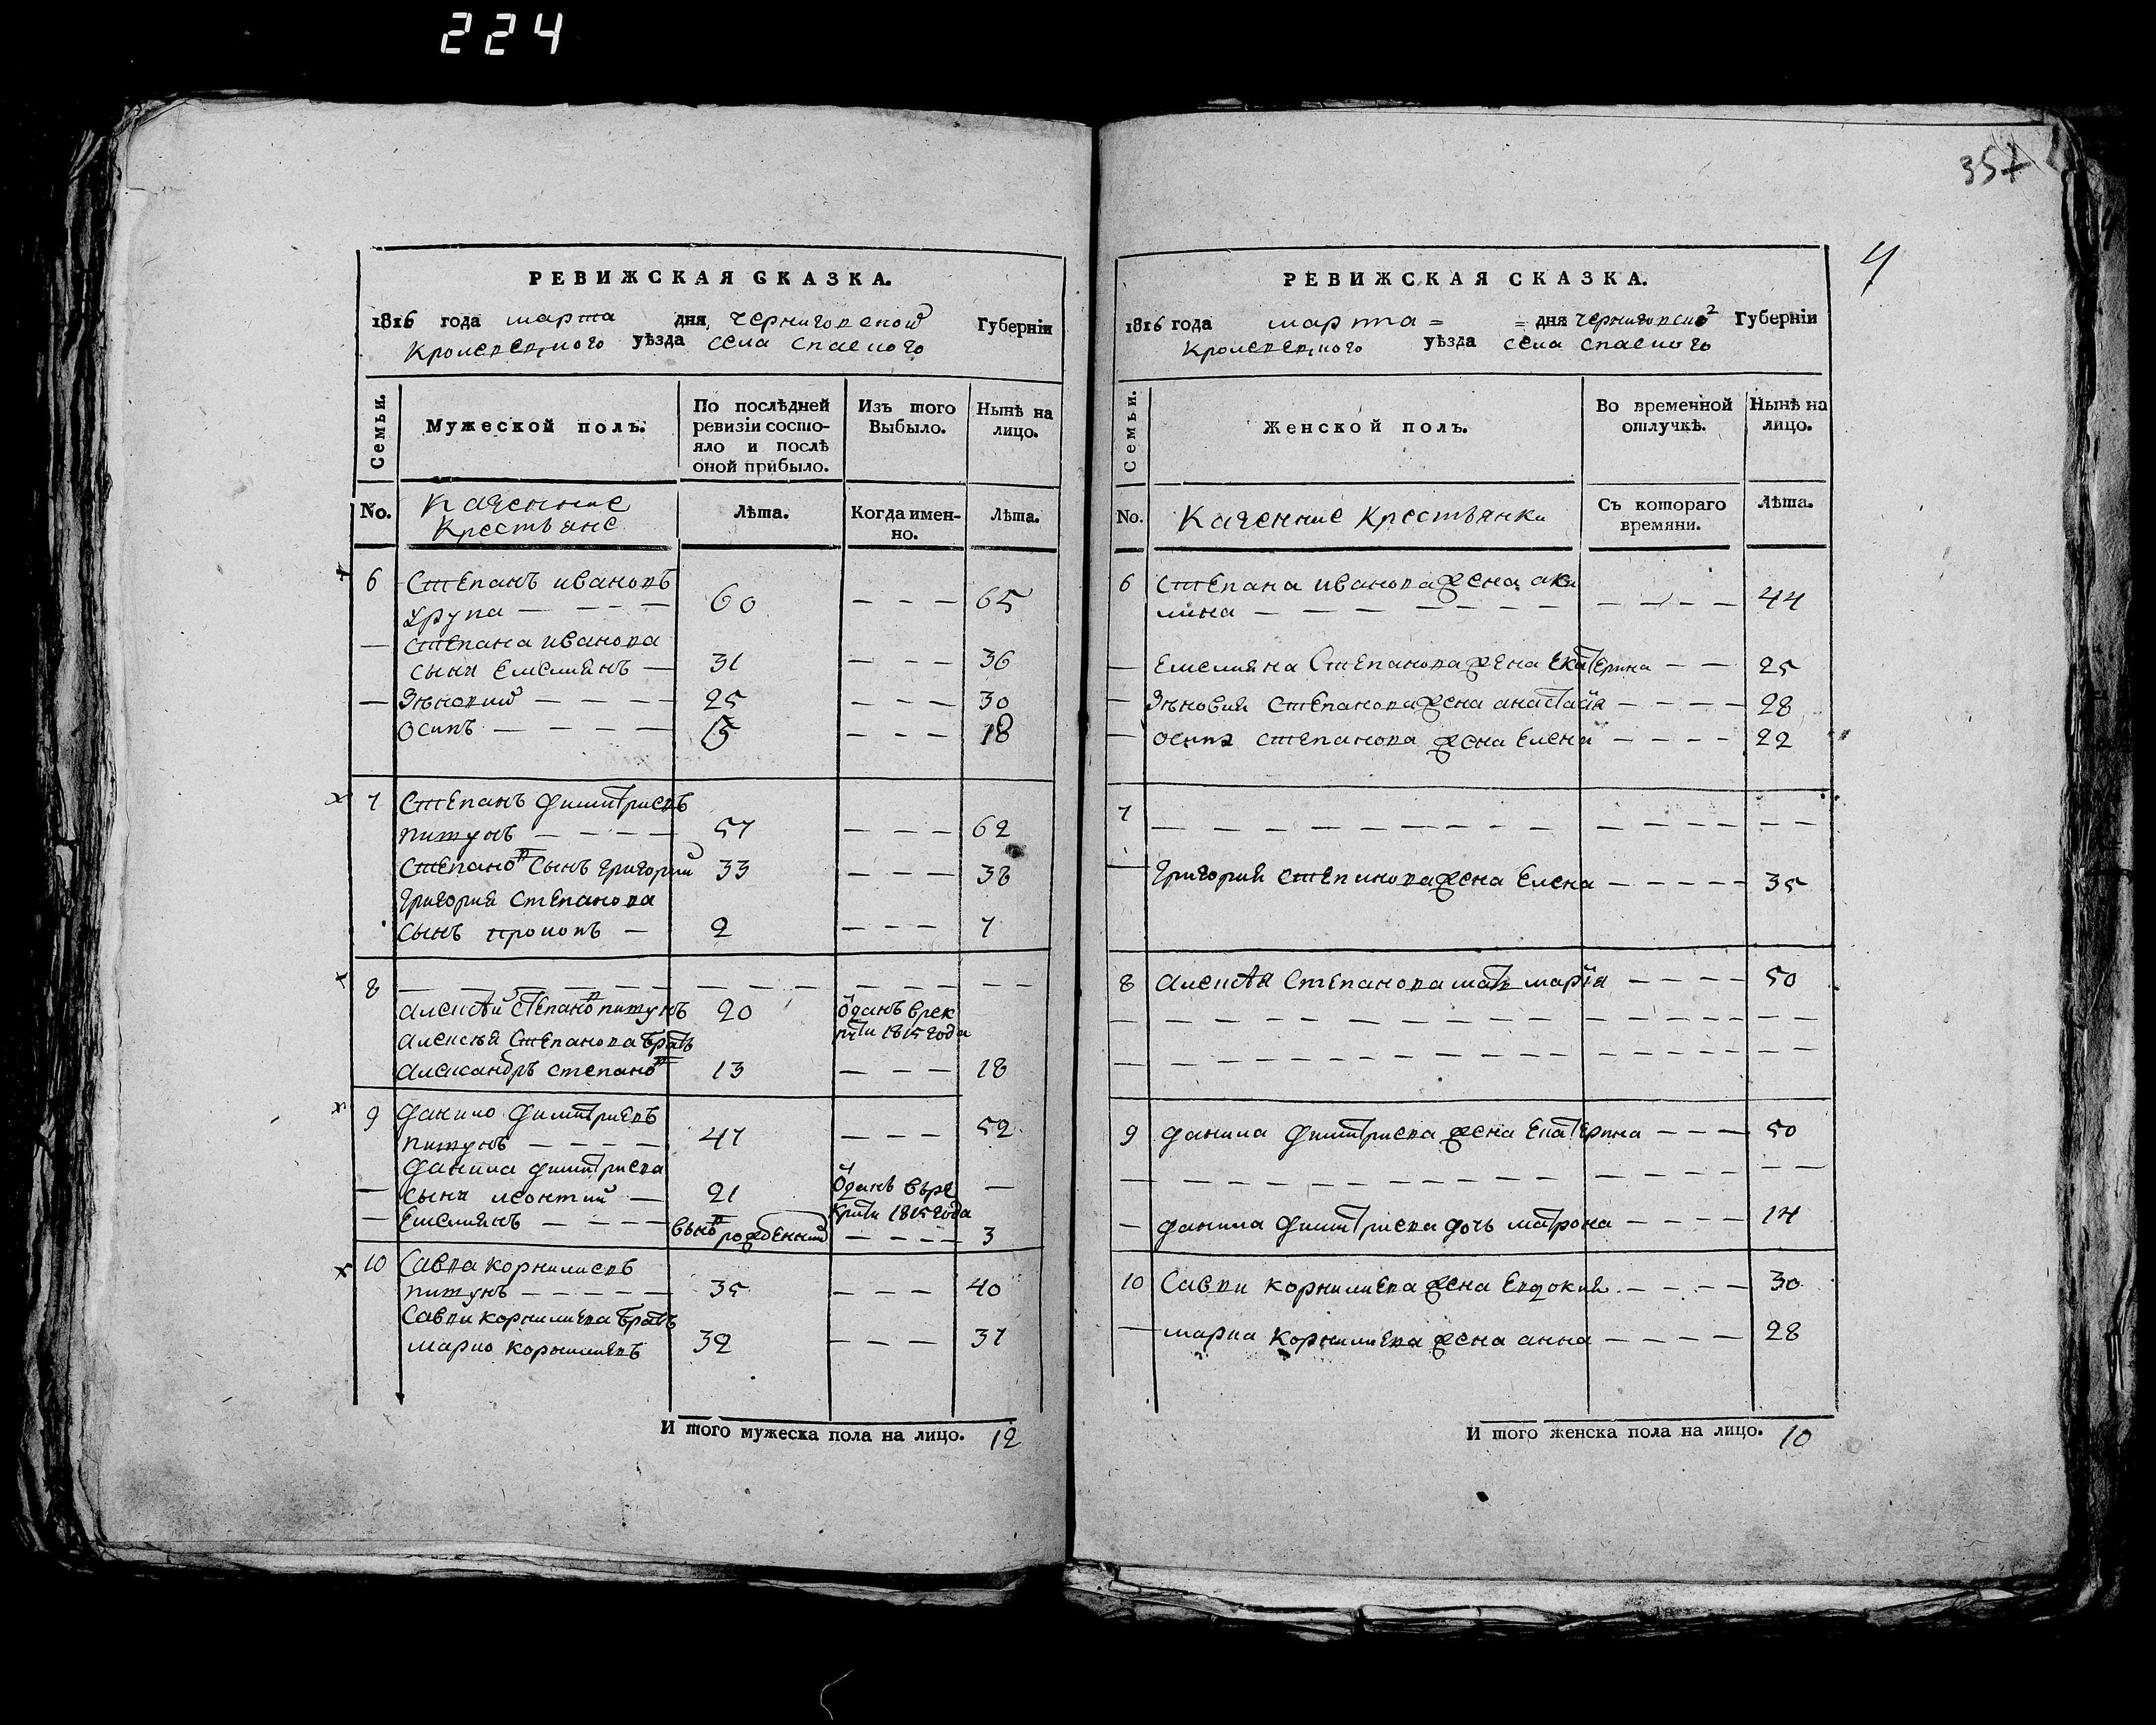 224
357
4
РЕВИЖСКАЯ СКАЗКА.
1816 года марта дня, Черниговской Губерніи
Кролевецкого уѣзда села Спаского
Семьи.
Мужеской полъ.
По послѣдней ревизіи состояло и послѣ оной прибыло.
Изъ того Выбыло.
Нынѣ на лицо.
No.
Казенние
Крестьяне
Лѣта.
Когда именно.
Лѣта.
6 Степанъ Ивановъ
60 — — — 65
— Степана Иванова
сыны Емелиянъ — 31 — — — 36
— Зѣновий — — — — 25 — — — 30
Осипъ — — — — 15 — — — 18
7 Степанъ Димитриевъ
Питунъ — — — — 57 — — — 62
Степановъ сынъ Григорий 33 — — — 38
Григория Степанова
сынъ Прокопъ — 2 — — — 7
8 — — — — — — — —
Алексѣй Степановъ Питунъ 20 Оданъ в рек
руты 1815 года
Алексѣя Степанова братъ
Александръ Степановъ 13 — — — 18
9 Данило Димитриевъ
Питунъ — — — — 47 — — — 52
Данила Димитриева
— сыны Леонтий — 21 Оданъ в ре —
круты 1815 года
— Емелиянъ — — — — вновъ рожденний — — — — 3
10 Савка Корнилиевъ
Питунъ — — — — — 35 — — — 40
Савки Корнилиева братъ
Марко Корнилиевъ 32 — — — 37
И того мужеска пола на лицо. 12
РЕВИЖСКАЯ СКАЗКА.
1816 года марта = = дня Черниговско Губерніи
Кролевецкого уѣзда села Спаского
Семьи.
Женской полъ.
Во временной отлучкѣ.
Нынѣ на лицо.
No.
Казенние Крестьянки
Съ котораго времяни.
Лѣта.
6 Степана Иванова жена Аки
лина — — — — — — — — — — — 44
— Емелияна Степанова жена Екатерина — — 25
— Зѣновия Степанова жена Анастасия — — — — 28
— Осипа Степанова жена Елена — — — — 22
7 — — — — — — — — — — — — — — —
— Григория Степанова жена Елена — — — — — 35
8 Алексѣя Степанова мать Мария — — — — 50
— — — — — — — — — — — — — — — —
— — — — — — — — — — — — — — — —
9 Данила Димитриева жена Екатерина — — — 50
— — — — — — — — — — — — — — —
— Данила Димитриева дочь Матрона — — — — 14
10 Савки Корнилиева жена Евдокия — — — — 30
— Марка Корнилиева жена Анна — — — — 28
И того женска пола на лицо. 10